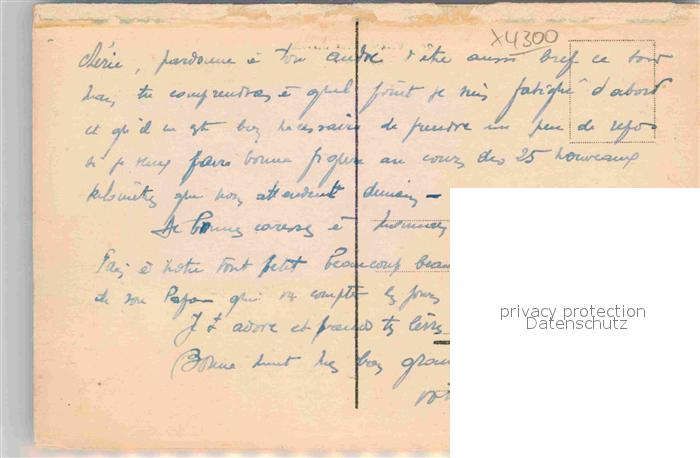 X4300
chérie, pardonne à ton André d'être aussi bref ce soir
mais tu comprendras à quel point je suis fatigué d'abord
et qu'il m'est bien nécessaire de prendre un peu de repos
si je veux faire bonne figure au cours des 25 nouveaux
kilomètres qui nous attendent demain –
De bonnes caresses à
Fais à notre tout petit beaucoup beau
de son Papa qui va compter les jours
Je t'adore et prends tes lèvres
Bonne nuit mes bons gran
privacy protection
Datenschutz